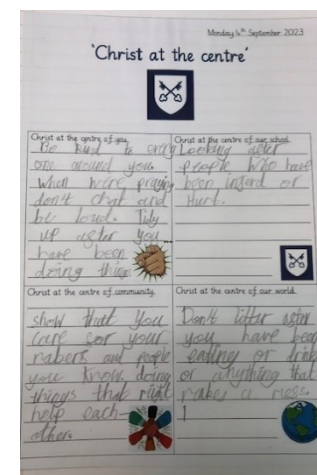 Monday 4th September 2023
'Christ at the centre'
Christ at the centre of you.
Be kind to every
one around you.
When we're praying
don't chat and
be loud. Tidy
up after you
have been
doing things
Christ at the centre of our school.
Looking after
people who have
been injerd or
Hurt.
Christ at the centre of community.
show that you
care for your
nabers and people
you know. doing
things that right
help each
other.
Christ at the centre of our world.
Don't litter after
you have been
eating or drink
or anything that
makes a mess.